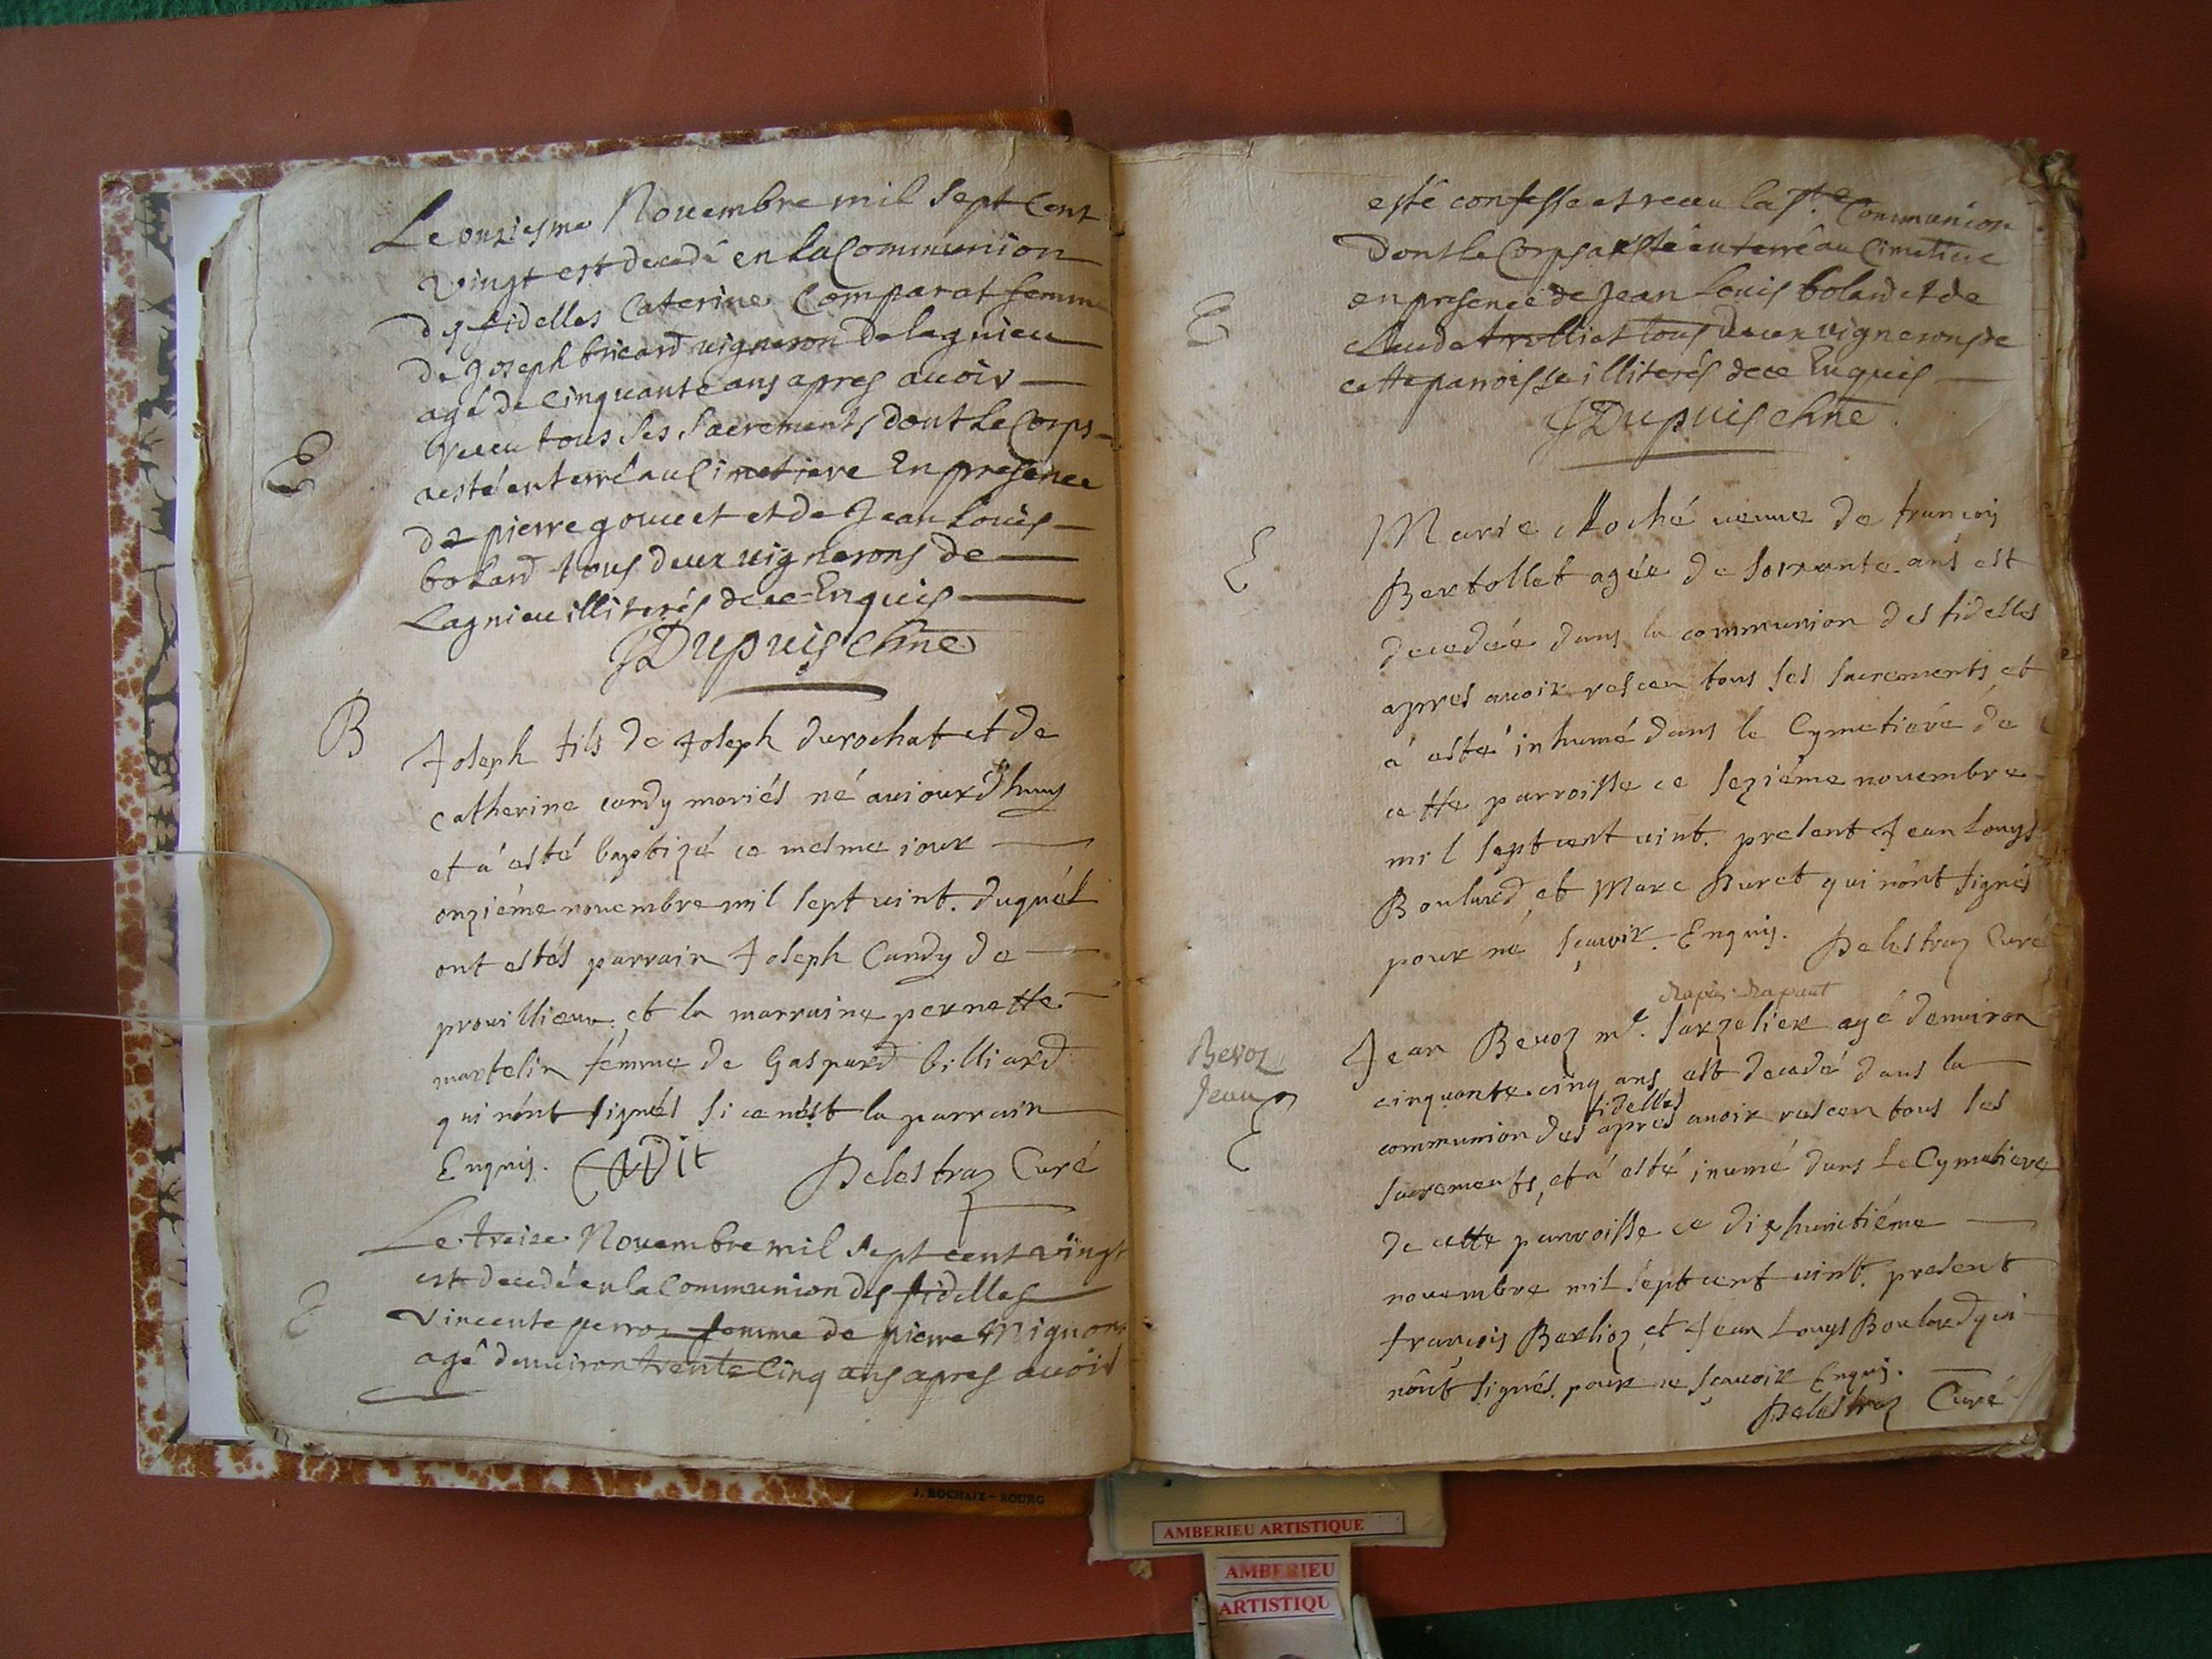 Le onziesme Novembre mil sept Cent
vingt est decedé en la Communion
des fidelles Caterine Comparat femme
de Joseph bricard vigneron de lagnieu
agé de Cinquante ans apres avoir
receu tous ses Sacrements dont le Corps
a esté enterré au Cimetiere En presence
de pierre gouuet et de Jean Louis
bolard tous deux vignerons de
Lagnieu illiterés de ce Enquis
JDupuis chne
E
B
Joseph fils de Joseph durochat et de
catherine candy mariés né auiourd'huy
et a' esté baptizé ce mesme iour
onziéme nouembre mil sept uint. duquél
ont estés parrain Joseph Candy de
prouillieux et la marraine pernette
martelin femme de Gaspard billiard
qui n'ont signés si ce n'est le parrain
Enquis. Candit Delestraz Curé
Le treize Novembre mil sept cent vingt
est decedé en la Communion des fidelles
E
vincente perroz femme de pierre Mignon
agé d'environ trente Cinq ans apres avoir
esté confesse et receu la ste Communion
dont le Corps a esté enterré au Cimetiere
en presence de Jean Louis bolard et de
E
Claude trolliet tous deux vignerons de
cette paroisse illiterés de ce Enquis
JDupuis chne
E
Marie Roché ueuue de francois
Bertollet agée de soixante ans est
decedée dans la communion des fidelles
apres auoir resceu tous ses sacrements, et
a' esté inhumé dans le Cymetiére de
cette parroisse ce seziéme nouembre
mil sept cent uint. present Jean Louys
Boulard, et Marc Buret qui n'ont signés
pour ne sçauoir. Enquis. Delestraz Curé
Bevoz
Jean
E
Jean Beuoz mr. sarzelier agé d'enuiron
cinquante cinq ans est decedé dans la
fidelles
communion des apres auoir resceu tous ses
sacrements, et a' esté inumé dans le Cymetiere
de cette parroisse ce dix huictiéme
nouembre mil sept cent uint. present
françois Berlioz, et Jean Louys Boulard qui
n'ont signés. pour ne sçauoir Enquis.
Delestraz Curé
J. ROCHAIX - BOURG
AMBERIEU ARTISTIQUE
AMBERIEU
ARTISTIQU